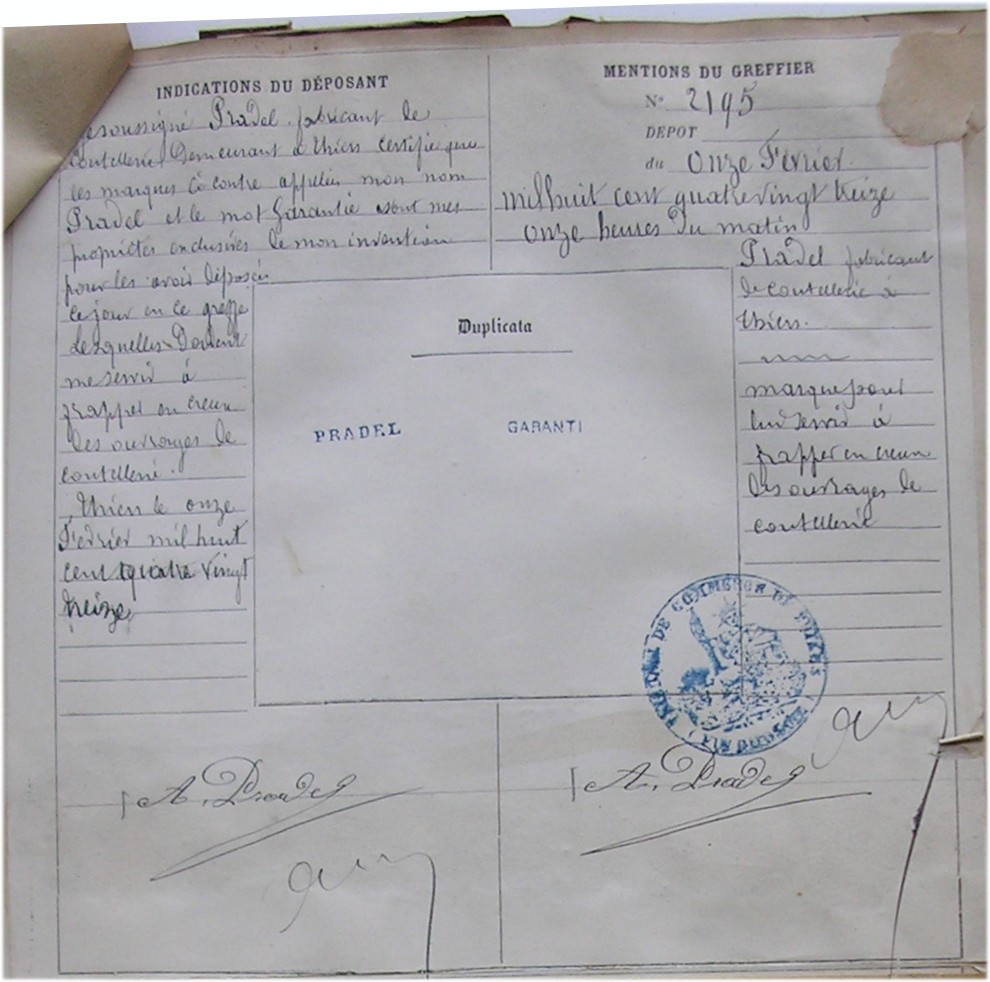 INDICATIONS DU DÉPOSANT
Je soussigné Pradel fabricant de
Coutellerie Demeurant à Thiers certifie que
les marques ci contre appelées mon nom
Pradel et le mot Garantie sont mes
propriétés exclusives de mon invention
pour les avoir déposées
ce jour en ce greffe
Lesquelles Doivent
me servir à
frapper en creux
des ouvrages de
coutellerie.
Thiers le onze
Février mil huit
cent quatre vingt
treize
MENTIONS DU GREFFIER
N° 2195
DEPOT
du Onze Février
mil huit cent quatre vingt treize
onze heures du matin
Pradel fabricant
de coutellerie à
Thiers.
marque pour
lui servir à
frapper en creux
des ouvrages de
coutellerie
Duplicata
PRADEL GARANTI
TRIBUNAL DE COMMERCE DE THIERS
(PUY DE DÔME)
A. Pradel
A. Pradel